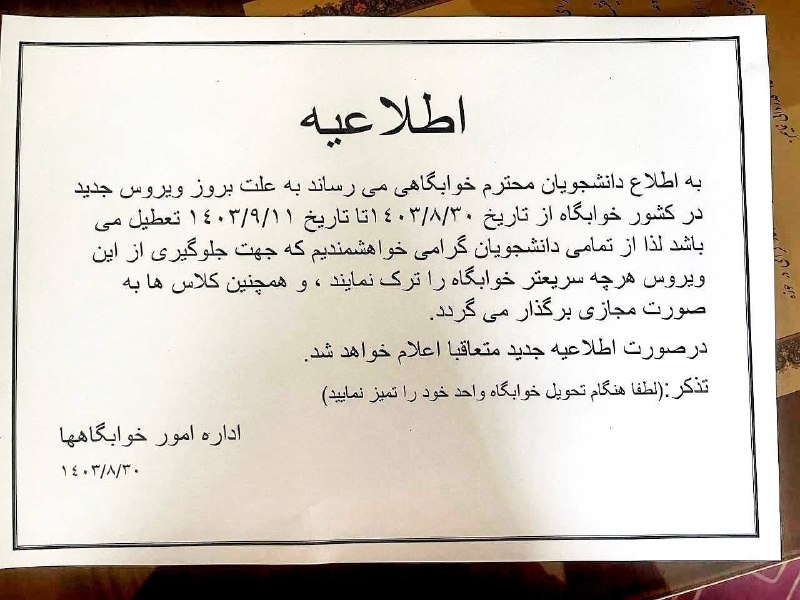 اطلاعیه
به اطلاع دانشجویان محترم خوابگاهی می رساند به علت بروز ویروس جدید
در کشور خوابگاه از تاریخ ۱۴۰۳/۸/۳۰تا تاریخ ۱۴۰۳/۹/۱۱ تعطیل می
باشد لذا از تمامی دانشجویان گرامی خواهشمندیم که جهت جلوگیری از این
ویروس هرچه سریعتر خوابگاه را ترک نمایند ، و همچنین کلاس ها به
صورت مجازی برگذار می گردد.
درصورت اطلاعیه جدید متعاقبا اعلام خواهد شد.
تذکر:(لطفا هنگام تحویل خوابگاه واحد خود را تمیز نمایید)
اداره امور خوابگاهها
۱۴۰۳/۸/۳۰